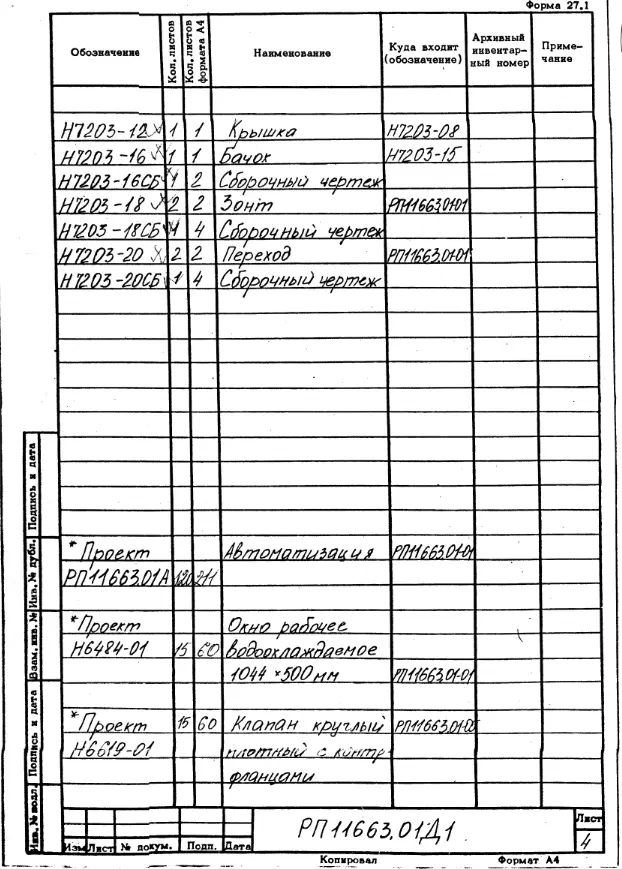 Форма 27.1
Обозначение Кол. листов Кол. листов формата А4 Наименование Куда входит (обозначение) Архивный инвентар- ный номер Приме- чание
Н7203-12 1 1 Крышка Н7203-08
Н7203-16 1 1 Бачок Н7203-15
Н7203-16СБ 1 2 Сборочный чертеж
Н7203-18 2 2 Зонт РП11663.01-01
Н7203-18СБ 1 4 Сборочный чертеж
Н7203-20 2 2 Переход РП11663.01-01
Н7203-20СБ 1 4 Сборочный чертеж
*Проект Автоматизация РП11663.01-01
РП11663.01А 120 211
*Проект Окно рабочее
Н6484-01 15 60 водоохлаждаемое
1044 × 500 мм РП11663.01-01
*Проект 15 60 Клапан круглый РП11663.01-
Н6619-01 плотный с контр
фланцами
Инв. № подл. Подпись и дата Взам. инв. № Инв. № дубл. Подпись и дата
РП11663.01Д1
Лист
4
Изм Лист № докум. Подп. Дата
Копировал Формат А4